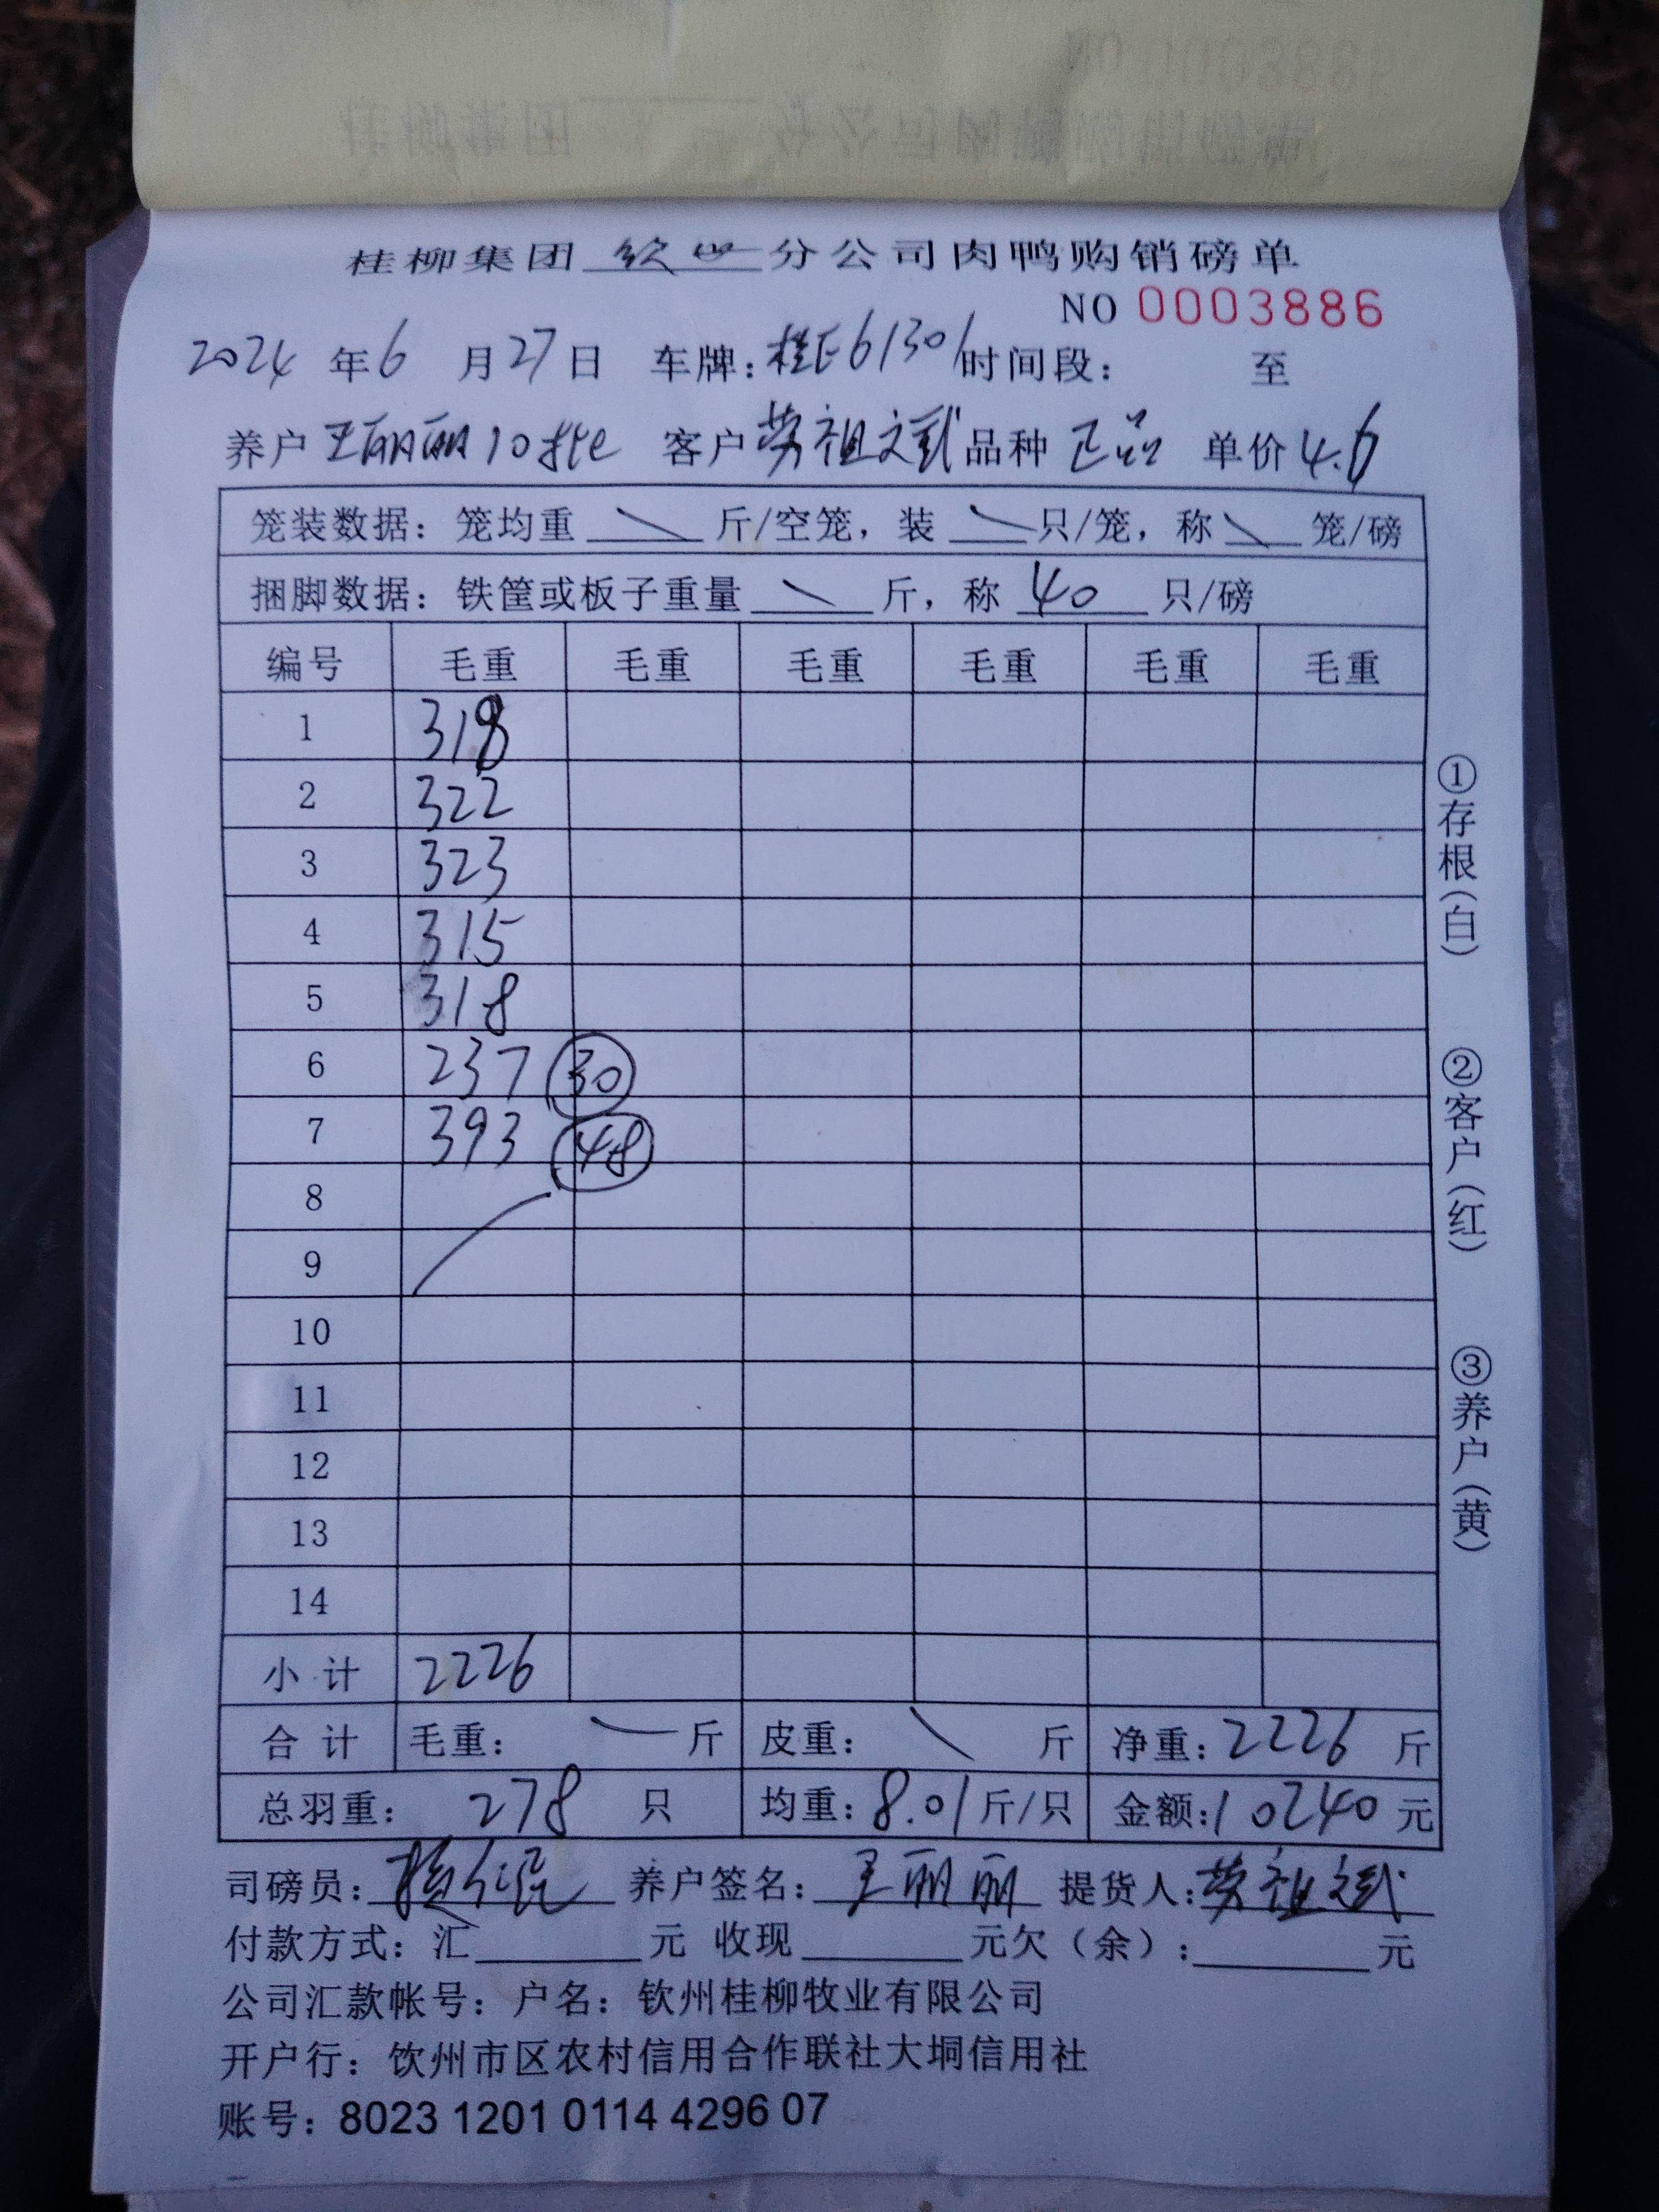 桂柳集团 分公司肉鸭购销磅单
NO 0003886
2024 年 6 月 27 日 车牌：桂E61301 时间段： 至
养户 王丽丽10批 客户 劳祖文武 品种 正品 单价 4.6
笼装数据：笼均重 斤/空笼，装 只/笼，称 笼/磅
捆脚数据：铁筐或板子重量 斤，称 40 只/磅
编号 毛重 毛重 毛重 毛重 毛重 毛重
1 318
2 322
3 323
4 315
5 318
6 237 30
7 393 48
8
9
10
11
12
13
14
小 计 2226
合 计 毛重： 斤 皮重： 斤 净重：2226 斤
总羽重： 278 只 均重：8.01 斤/只 金额：10240 元
司磅员： 养户签名：王丽丽 提货人：劳祖文武
付款方式：汇 元 收现 元欠（余）： 元
公司汇款帐号：户名：钦州桂柳牧业有限公司
开户行：钦州市区农村信用合作联社大垌信用社
账号：8023 1201 0114 4296 07
①存根（白）
②客户（红）
③养户（黄）